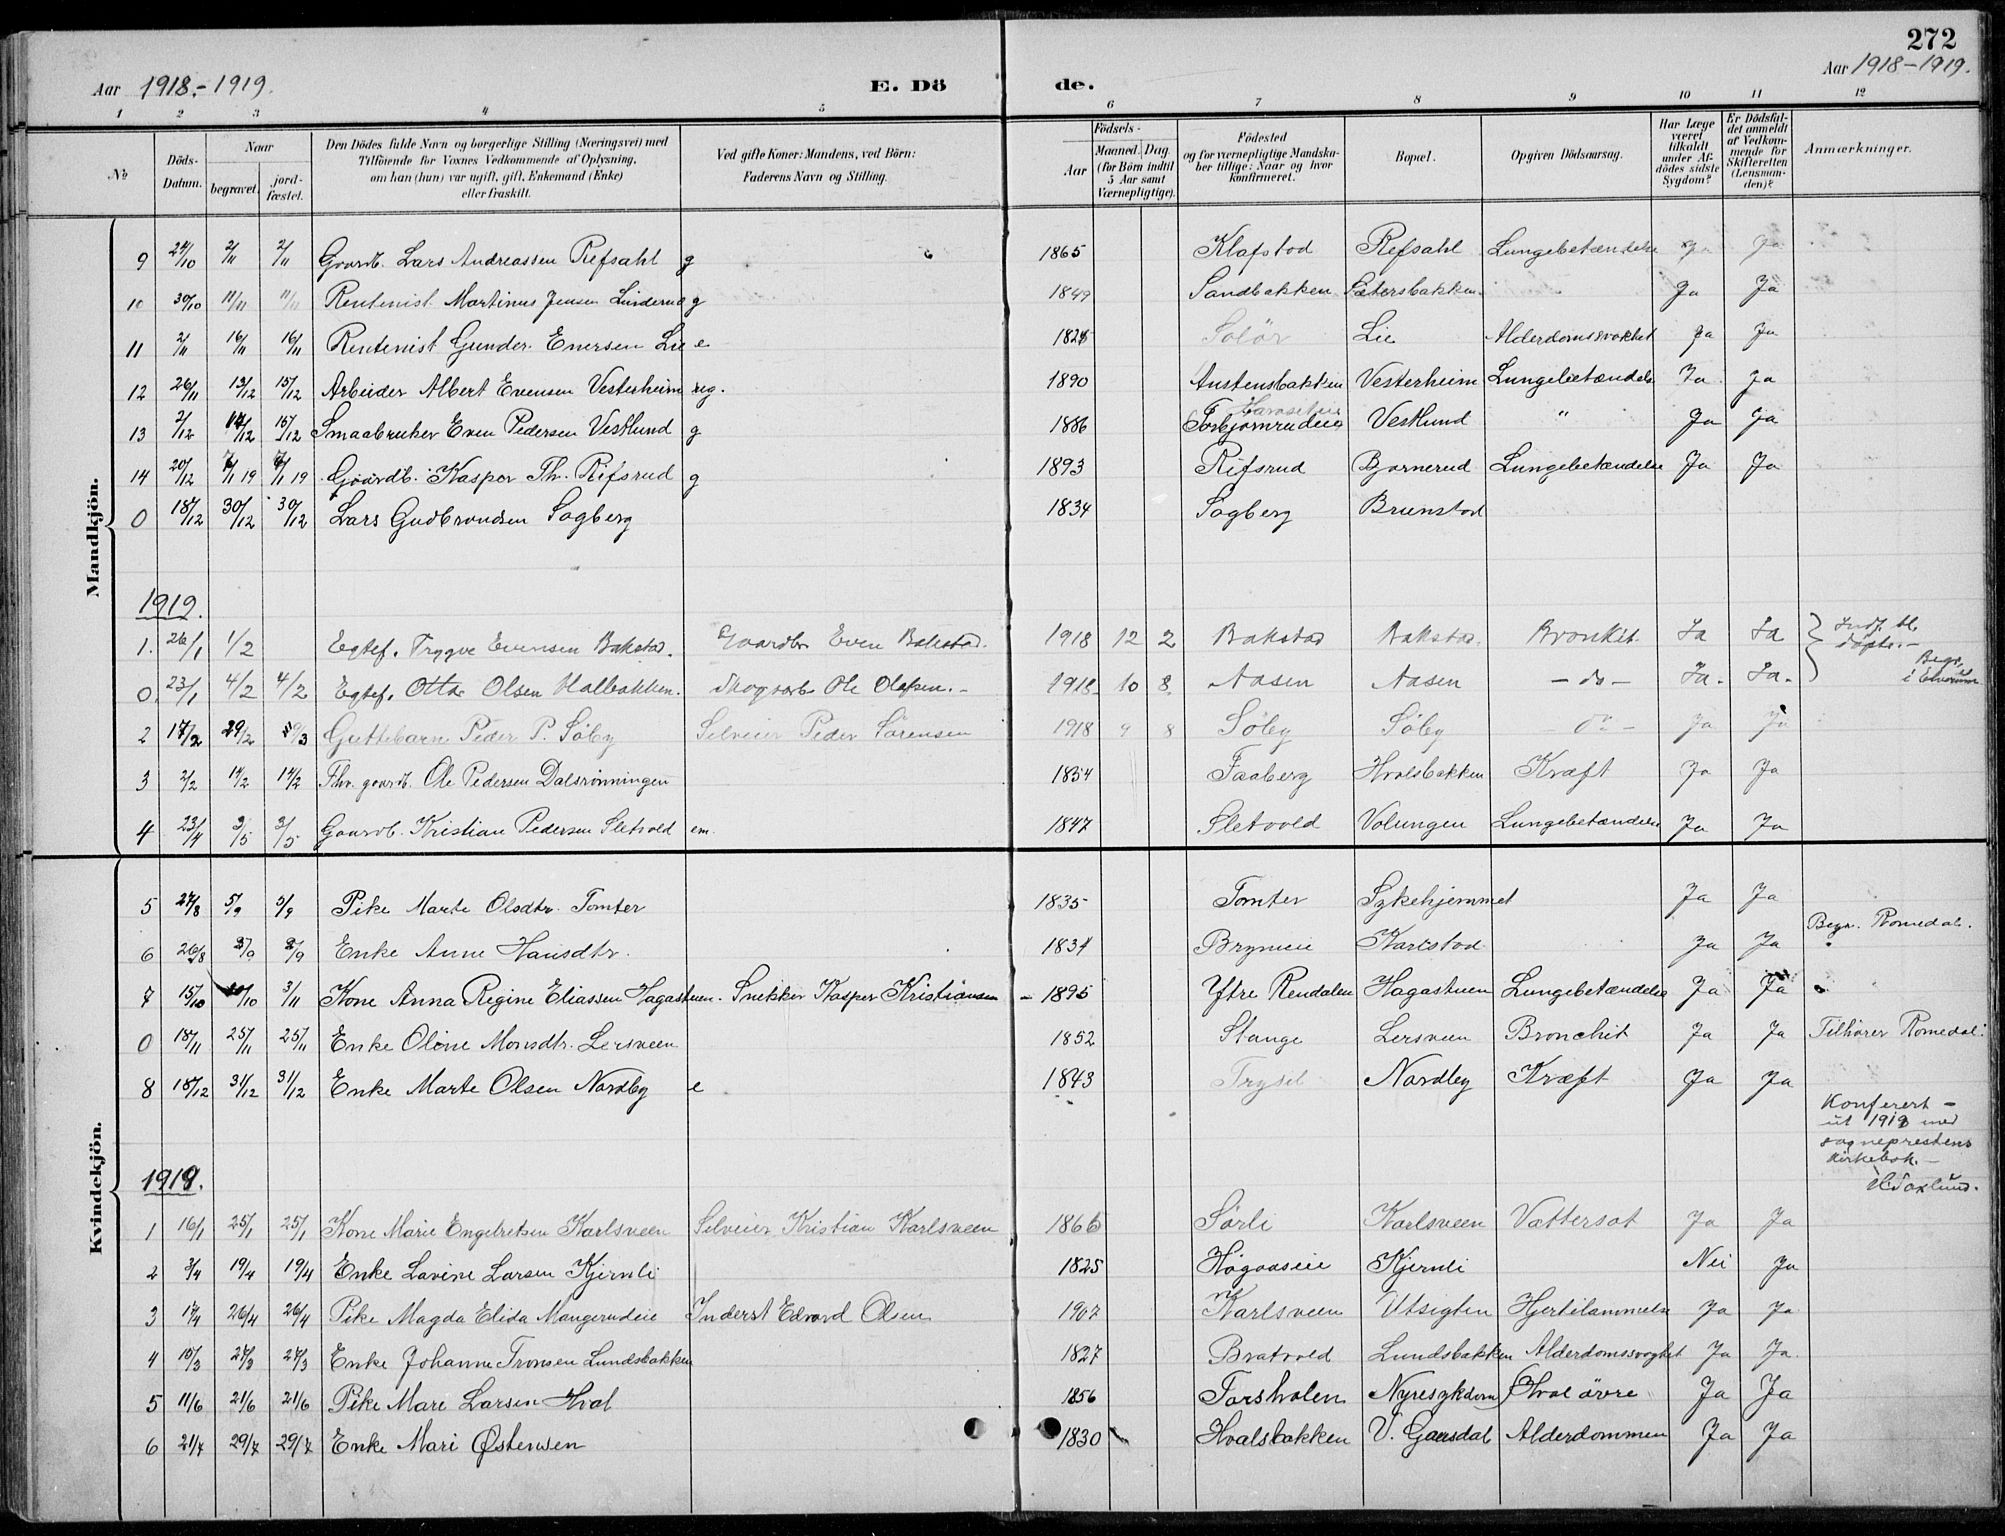 272
Aar 1918.-1919.
E. Dö de.
Aar 1918-1919.
1 2 3 4 5 6 7 8 9 10 11 12
No
Döds-Datum.
Naar
begravet.
jord-fæstet.
Den Dödes fulde Navn og borgerlige Stilling (Næringsvei) med
Tilföiende for Voxnes Vedkommende af Oplysning,
om han (hun) var ugift, gift, Enkemand (Enke)
eller fraskilt.
Ved gifte Koner: Mandens, ved Börn:
Faderens Navn og Stilling.
Födsels-
Aar
Maaned. Dag.
(for Börn indtil
5 Aar samt
Værnepligtige).
Födested
og for værnepligtige Mandska-
ber tillige: Naar og hvor
konfirmeret.
Bopæl.
Opgiven Dödsaarsag.
Har Læge
været
tilkaldt
under Af-
dödes sidste
Sygdom?
Er Dödsfal-
det anmeldt
af Vedkom-
mende for
Skifteretten
(Lensman-
den)?
Anmærkninger.
Mandkjön.
9 24/10 2/11 2/11 Gaardb. Lars Andreassen Refsahl g 1865 Klafstad Refsahl Lungebetændelse Ja Ja
10 30/10 11/11 11/11 Rentenist Martinus Jensen g 1849 Sandbakken Sætersbakken Ja Ja
11 2/11 16/11 16/11 Rentenist Gunder Enersen Lie e Solör Lie Alderdomssvakhet Ja Ja
12 26/11 13/12 15/12 Arbeider Albert Evensen Vesterheim ug. 1890 Austensbakken Vesterheim Lungebetændelse Ja Ja
13 2/12 15/12 Smaabruker Even Pedersen Vestlund g 1886 Torbjörnrudeie Vestlund " Ja Ja
14 20/12 /1 19 /1 19 Gaardb. Kasper Th. Rifsrud g 1893 Rifsrud Bjornerud Lungebetændelse Ja Ja
0 18/12 30/12 30/12 Lars Gudbrandsen Sagberg 1834 Sagberg Brunstad
1919.
1. 26/1 1/2 Egtef. Trygve Evensen Bakstad. Gaardbr Even Bakstad. 1918 12 2 Bakstad Bakstad. Bronkit. Ja Ja
döpt.-
0. 23/1 4/2 4/2 Egtef. Otto Olsen Halbakken. Skogsarb. Ole Olafsen.- 1918 10 8. Aasen Aasen - do - Ja. Ja. Begr.
i Elverum
2 17/2 29/2 /3 Guttebarn Peder P. Söby Selveier Peder Sörensen 1918 9 8 Söby Söby - do - Ja Ja
3 2/2 14/2 14/2 Fhv. gaardb. Ole Pedersen Dalsrönningen 1854 Faaberg Hvalsbakken Kræft Ja Ja
4 23/4 3/5 3/5 Gaardb. Kristian Pedersen Sletvold em. 1847 Sletvold Volungen Lungebetændelse Ja Ja
Kvindekjön.
5 27/8 5/9 5/9 Pike Marte Olsdtr. Tomter 1835 Tomter Sykehjemmet Ja Ja
6 26/8 /9 /9 Enke Anne Hansdtr. 1834 Brynieie Karlstad Ja Ja Begr. Romedal.
7 15/10 /10 3/11 Kone Anna Regine Eliassen Hagastuen. Snekker Kasper Kristiansen - 1895 Ytre Rendalen Hagastuen Lungebetændelse Ja Ja
0 18/11 25/11 25/11 Enke Oline Monsdtr. Lersveen 1852 Stange Lersveen Bronchit Ja Ja Tilhörer Romedal.
8 18/12 31/12 31/12 Enke Marte Olsen Nordby e 1843 Trysil Nordby Kræft Ja Ja
Konferert -
ut 1918 med
sogneprestens
kirkebok.-
1919.
1 16/1 25/1 25/1 Kone Marie Engebretsen Karlsveen Selveier Kristian Karlsveen 1866 Sörli Karlsveen Vattersot Ja Ja
2 3/4 19/4 19/4 Enke Lavine Larsen Kjernli 1825 Högaaseie Kjernli Nei Ja
3 17/4 26/4 26/4 Pike Magda Elida Mangerudeie Inderst Edvard Olsen 1907 Karlsveen Utsigten Hjertelammelse Ja Ja
4 15/3 27/3 27/3 Enke Johanne Tronsen Lundsbakken 1827 Bratvold Lundsbakken Alderdomssvaghet Ja Ja.
5 11/6 21/6 21/6 Pike Mari Larsen Hval 1856 Torsholen Nyresykdom Hval övre Ja Ja
6 21/7 29/7 29/7 Enke Mari Østensen 1830 Hvalsbakken V. Gausdal Alderdommen Ja Ja